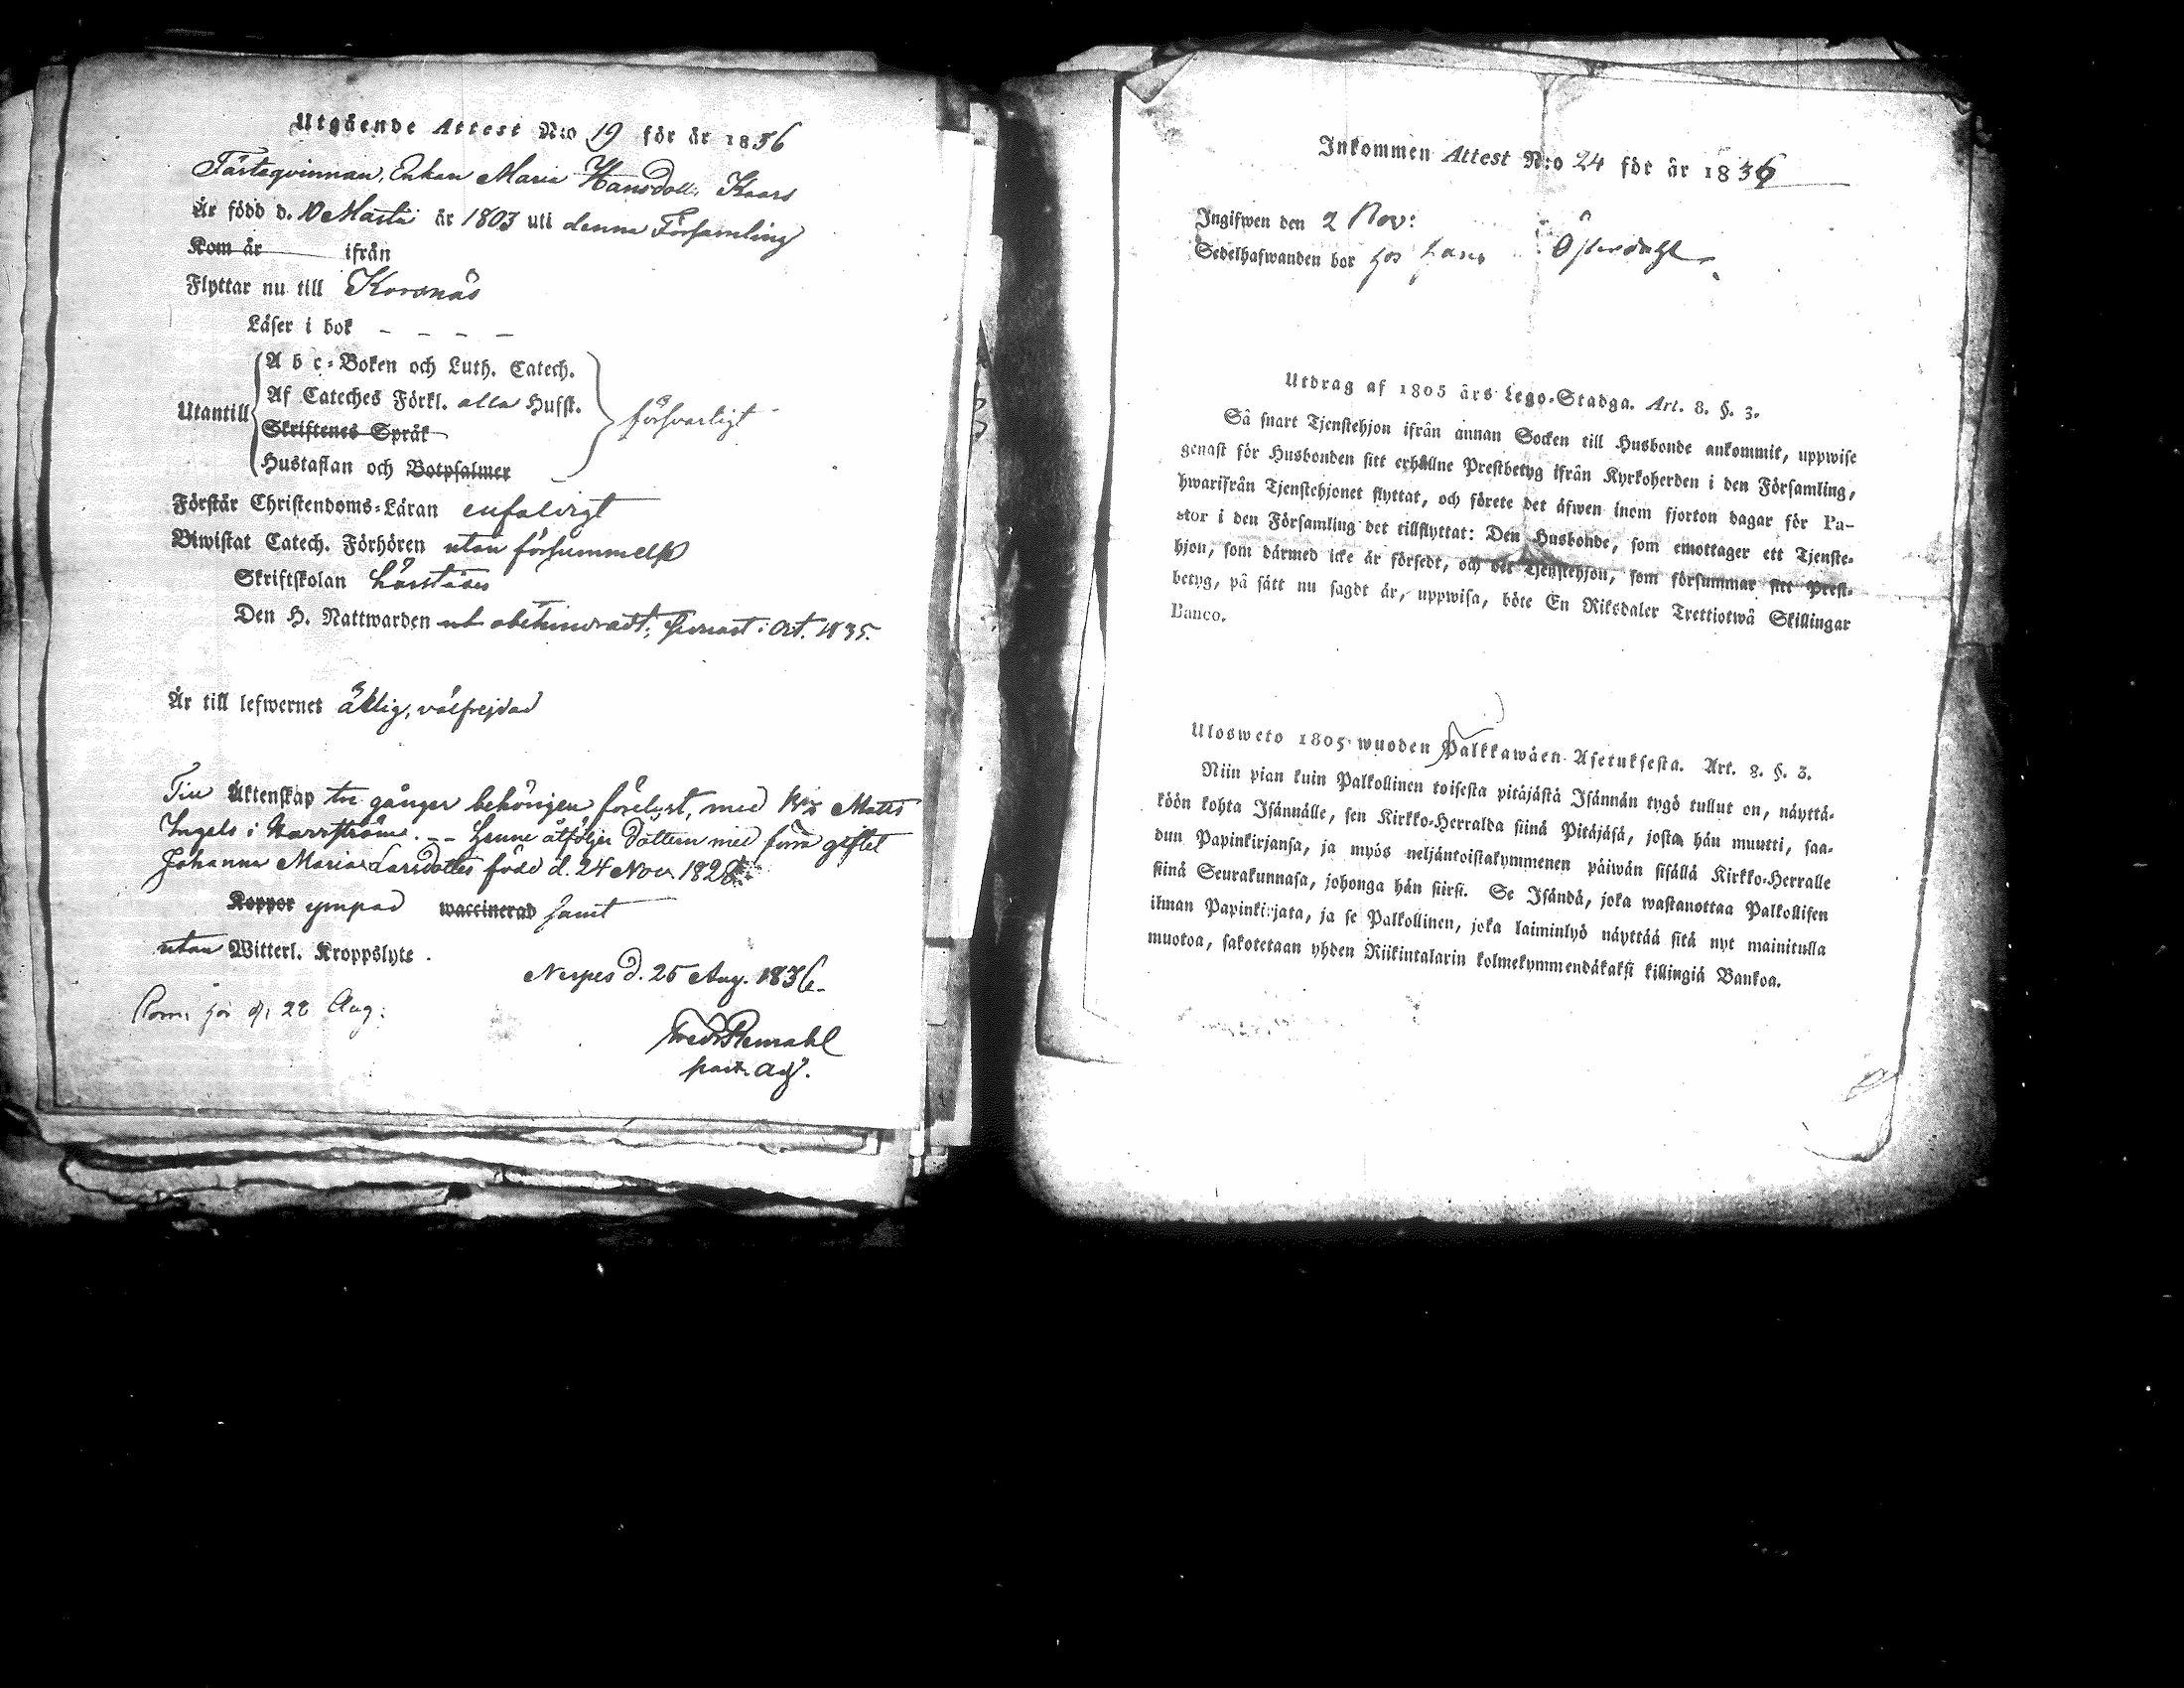 Utgående Attest N:o 19 för år 1836
Fästeqvinnan, Enkan Maria Hansdotter Kaars
Är född d. 10 Martii år 1803 uti denna Församling
Kom år ifrån
Flyttar nu till Korsnäs
Läser i bok – – – –
A b c-Boken och Luth. Catech.
Af Cateches Förkl. alla Husst.
Utantill försvarligt
Skriftenes Språk
Hustaflan och Botpsalmer
Förstår Christendoms-Läran enfaldigt
Biwistat Catech. Förhören utan försummelse
Skriftskolan
Den H. Nattwarden obehindradt, senast i Oct. 1835.
Är till lefwernet ärlig, välfrejdad
Till Äktenskap tre gånger behörigen förelyst, med Matts
Ingels i Harrström. – – Henne åtföljer dottern med förra giftet
Johanna Maria Larsdotter född d. 24 Nov. 1828
Koppor ympad waccinerad samt
utan Witterl. Kroppslyte.
Nerpes d. 25 Aug. 1836.
d. 28 Aug:
past. adj.
Inkommen Attest N:o 24 för år 1836
Ingifwen den 2 Nov:
Sedelhafwanden bor hos Lars Österdahl
Utdrag af 1805 års Lego-Stadga. Art. 8. §. 3.
Så snart Tjenstehjon ifrån annan Socken till Husbonde ankommit, uppwise
genast för Husbonden sitt erhållne Prestbetyg ifrån Kyrkoherden i den Församling,
hwarifrån Tjenstehjonet flyttat, och förete det äfwen inom fjorton dagar för Pa-
stor i den Församling det tillflyttat: Den Husbonde, som emottager ett Tjenste-
hjon, som därmed icke är försedt, och det Tjenstehjon, som försummar sitt Prest-
betyg, på sätt nu sagdt är, uppwisa, böte En Riksdaler Trettiotwå Skillingar
Banco.
Ulosweto 1805 wuoden Palkkawäen Asetuksesta. Art. 8. §. 3.
Niin pian kuin Palkollinen toisesta pitäjästä Isännän tygö tullut on, näyttä-
köön kohta Isännälle, sen Kirkko-Herralda siinä Pitäjäsä, josta hän muutti, saa-
dun Papinkirjansa, ja myös neljäntoistakymmenen päiwän sisällä Kirkko-Herralle
siinä Seurakunnasa, johonga hän siirsi. Se Isändä, joka wastanottaa Palkollisen
ilman Papinkirjata, ja se Palkollinen, joka laiminlyö näyttää sitä nyt mainitulla
muotoa, sakotetaan yhden Riikintalarin kolmekymmendäkaksi killingiä Bankoa.